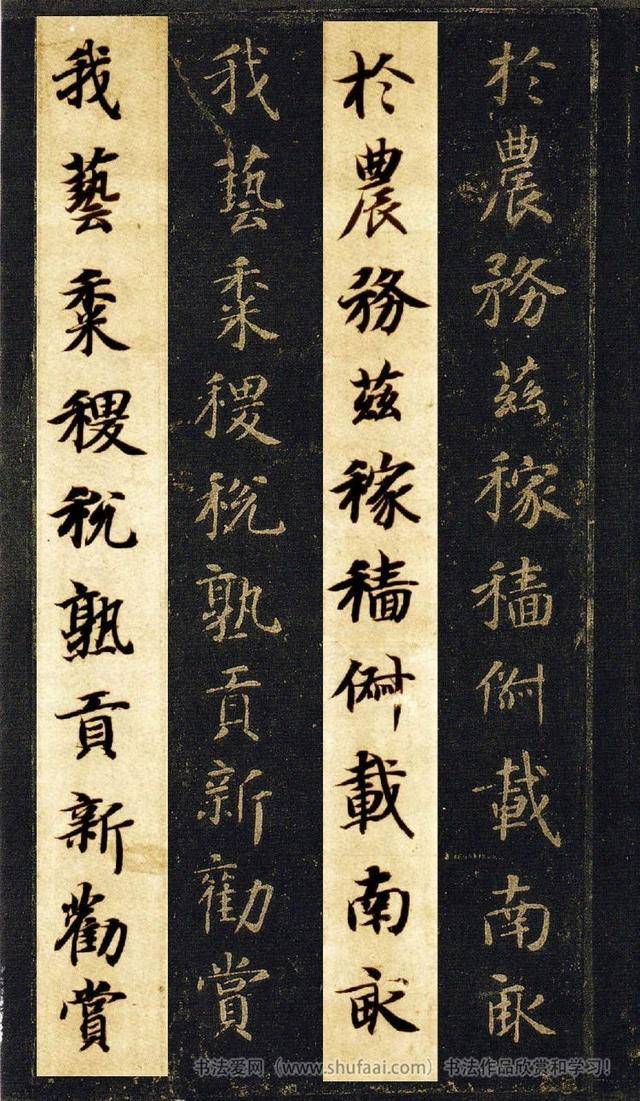 於農務茲稼穡俶載南畝
於農務茲稼穡俶載南畝
我藝黍稷稅熟貢新勸賞
我藝黍稷稅熟貢新勸賞
书法爱网（www.shufaai.com）书法作品欣赏和学习！